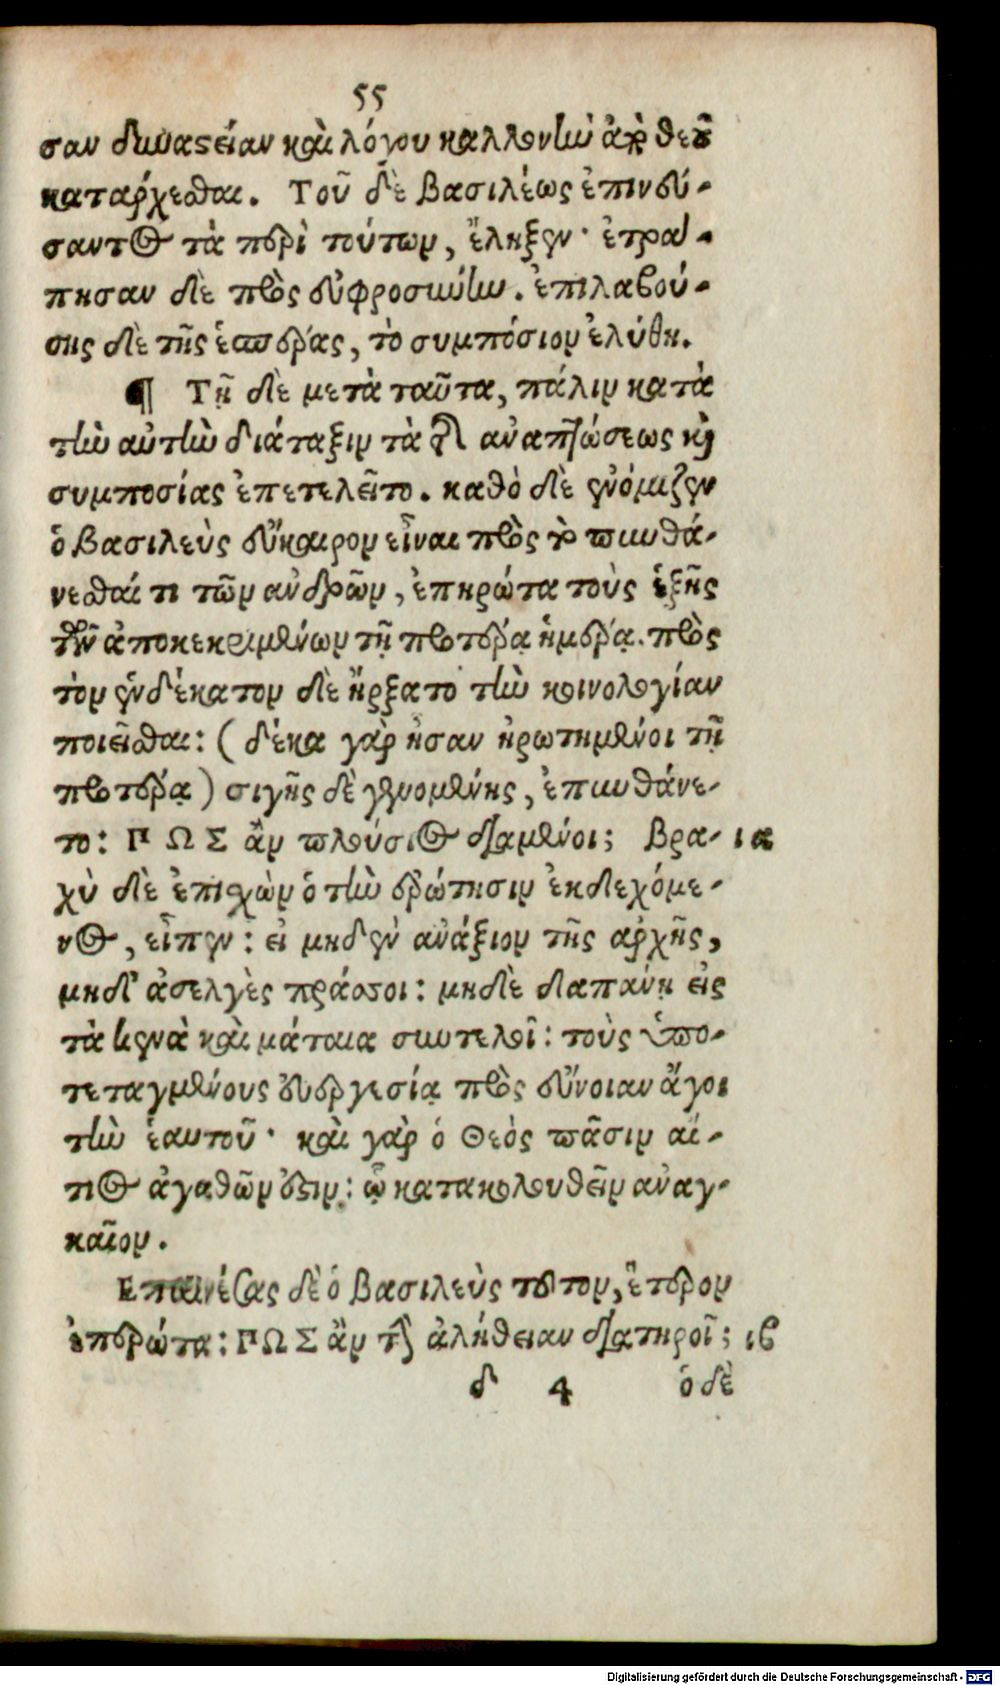 55
σαν δυναστείαν καὶ λόγου καλλονὴν ἀπὸ θεοῦ
κατάρχεσθαι. Τοῦ δὲ βασιλέως ἐπινεύ-
σαντος τὰ περὶ τούτων, ἔληξεν· ἐτρά-
πησαν δὲ πρὸς εὐφροσύνην. ἐπιλαβού-
σης δὲ τῆς ἑσπέρας, τὸ συμπόσιον ἐλύθη.
¶ Τῇ δὲ μετὰ ταῦτα, πάλιν κατὰ
τὴν αὐτὴν διάταξιν τὰ τῆς ἀναπτώσεως καὶ
συμποσίας ἐπετελεῖτο. καθὸ δὲ ἐνόμιζεν
ὁ βασιλεὺς εὔκαιρον εἶναι πρὸς τὸ πυνθά-
νεσθαί τι τῶν ἀνδρῶν, ἐπηρώτα τοὺς ἑξῆς
τῶν ἀποκεκριμένων τῇ προτέρᾳ ἡμέρᾳ. πρὸς
τὸν ἑνδέκατον δὲ ἤρξατο τὴν κοινολογίαν
ποιεῖσθαι: (δέκα γὰρ ἦσαν ἠρωτημένοι τῇ
προτέρᾳ) σιγῆς δὲ γενομένης, ἐπυνθάνε-
το: ΠΩΣ ἂν πλούσιος διαμένοι; Βρα- ια
χὺ δὲ ἐπισχὼν ὁ τὴν ἐρώτησιν ἐκδεχόμε-
νος, εἶπεν: εἰ μηδὲν ἀνάξιον τῆς ἀρχῆς,
μηδ' ἀσελγὲς πράσσοι: μηδὲ δαπάνῃ εἰς
τὰ κενὰ καὶ μάταια συντελοῖ: τοὺς ὑπο-
τεταγμένους εὐεργεσίᾳ πρὸς εὔνοιαν ἄγοι
τὴν ἑαυτοῦ· καὶ γὰρ ὁ Θεὸς πᾶσιν αἴ-
τιος ἀγαθῶν ἐστιν: ᾧ κατακολουθεῖν ἀναγ-
καῖον.
Επαινέσας δὲ ὁ βασιλεὺς τοῦτον, ἕτερον
ἐπερώτα: ΠΩΣ ἂν τὴν ἀλήθειαν διατηροῖ; ιβ
δ 4 ὁ δὲ
Digitalisierung gefördert durch die Deutsche Forschungsgemeinschaft - DFG